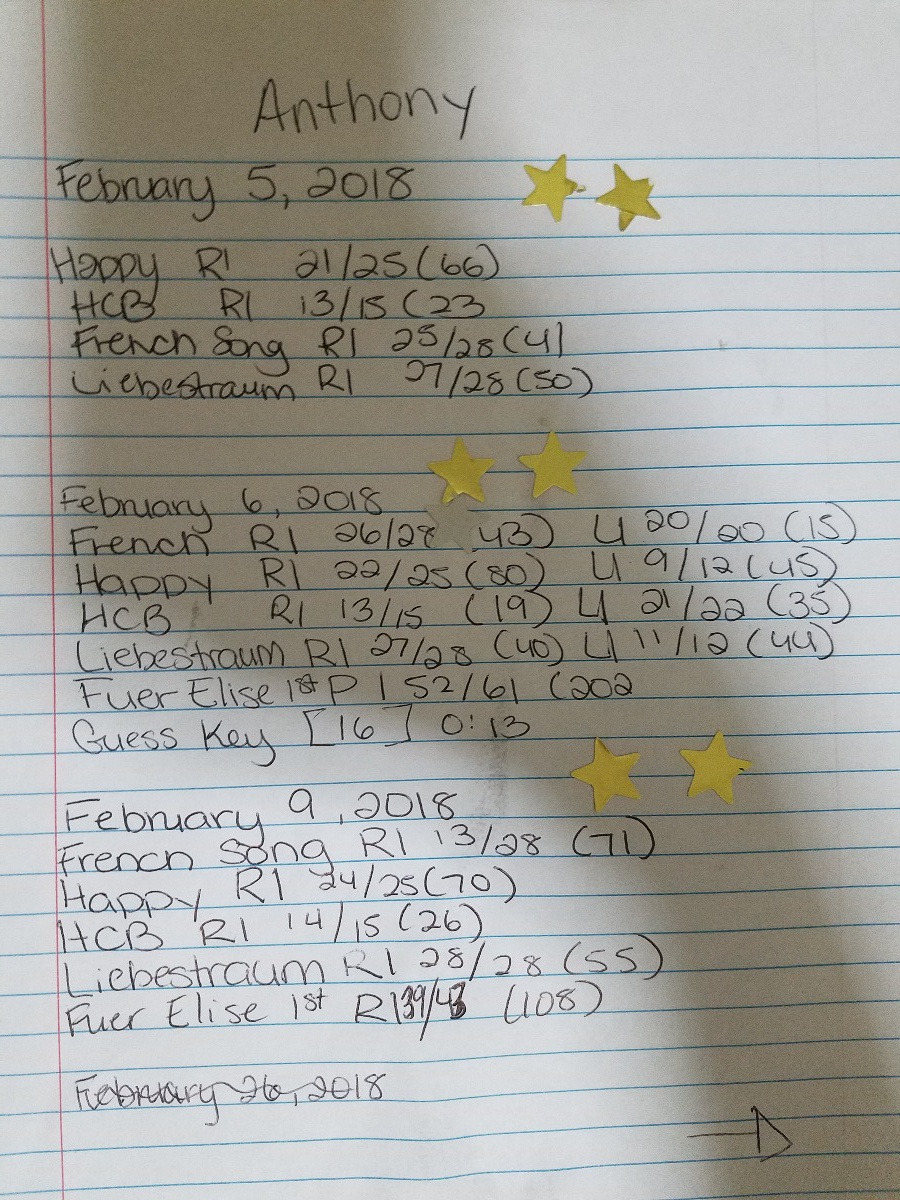 Anthony
February 5, 2018
Happy R1 21/25 (66)
HCB R1 13/15 (23
French Song R1 25/28 (41
Liebestraum R1 27/28 (50)
February 6, 2018
French R1 26/28 43) U 20/20 (15)
Happy R1 22/25 (80) U 9/12 (45)
HCB R1 13/15 (19) U 21/22 (35)
Liebestraum R1 27/28 (40) U 11/12 (44)
Fuer Elise 1st P 1 52/61 (202
Guess Key [16] 0:13
February 9, 2018
French Song R1 13/28 (71)
Happy R1 24/25 (70)
HCB R1 14/15 (26)
Liebestraum R1 28/28 (55)
Fuer Elise 1st R1 39/43 (108)
February 26, 2018